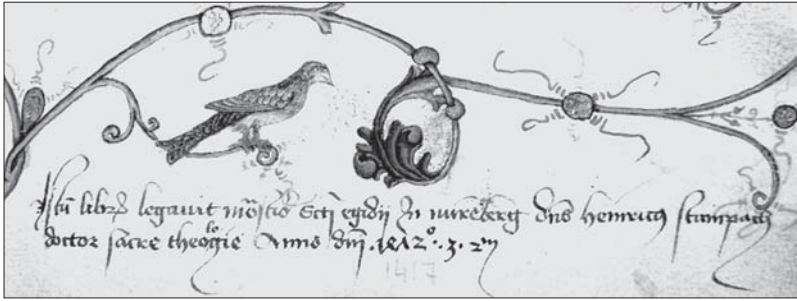 Istū librū legavit mōstio Scti egidii In nurēberg dn̄s heinricus stampach
doctor sacre theologie Anno dn̄i
1417